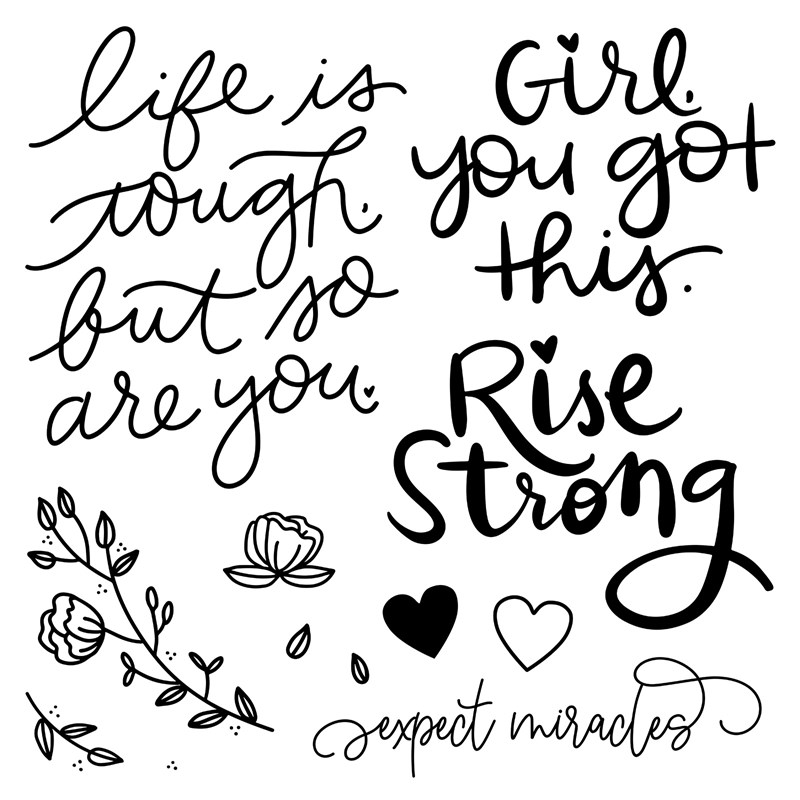 life is
tough.
but so
are you.
Girl,
you got
this.
Rise
Strong
expect miracles